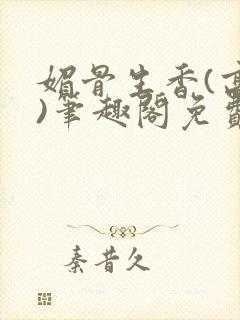 媚骨生香(
)笔趣阁免
秦昔久